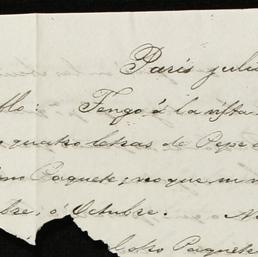 Paris julio
blo: Tengo á la vista
quatro letras de Pepe
Paquete, no que
bre, ó Octubre. N
otro Paquete